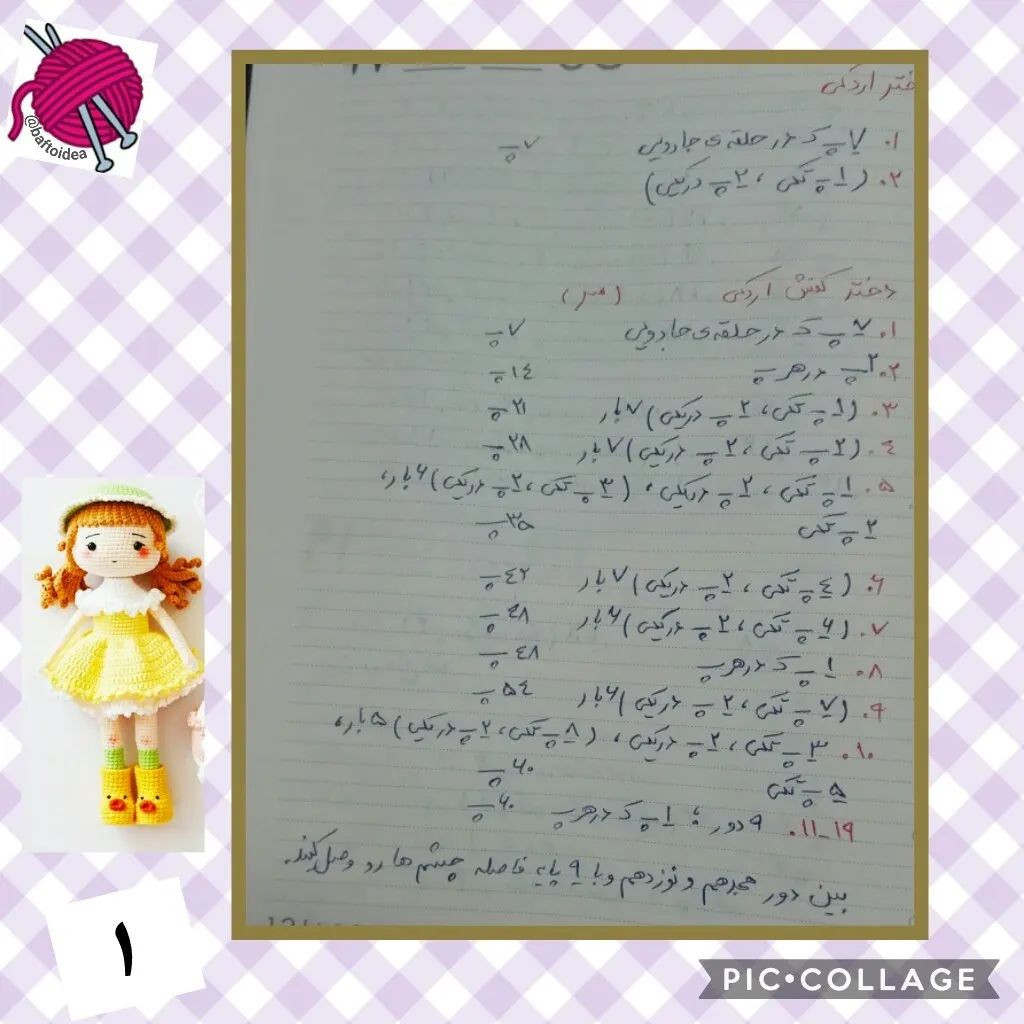 @baftoidea
ختر اردکی
۰۱ ۷پ ک در حلقه ی جادویی ۷پ
۰۲ (۱پ تکی، ۲پ دریکی)
دختر کفش اردکی (سر)
۰۱ ۷پ ک در حلقه ی جادویی ۷پ
۰۲ ۲پ درهر پ ۱٤پ
۰۳ (۱پ تکی، ۲پ دریکی) ۷بار ۲۱پ
۰٤ (۲پ تکی، ۲پ دریکی) ۷بار ۲۸پ
۰۵ ۱پ تکی، ۲پ دریکی، (۳پ تکی، ۲پ دریکی) ۶بار،
۲پ تکی ۳۵پ
۰۶ (٤پ تکی، ۲پ دریکی) ۷بار ٤۲پ
۰۷ (۶پ تکی، ۲پ دریکی) ۶بار ٤۸پ
۰۸ ۱پ ک درهر پ ٤۸پ
۰۹ (۷پ تکی، ۲پ دریکی) ۶بار ۵٤پ
۰۱۰ ۳پ تکی، ۲پ دریکی، (۸پ تکی، ۲پ دریکی) ۵بار،
۵پ تکی ۶۰پ
۰۱۱-۱۹ ۹دور : ۱پ ک درهر پ ۶۰پ
بین دور هجدهم و نوزدهم و با ۹ پایه فاصله چشم ها رو وصل کنید.
۱
PIC•COLLAGE